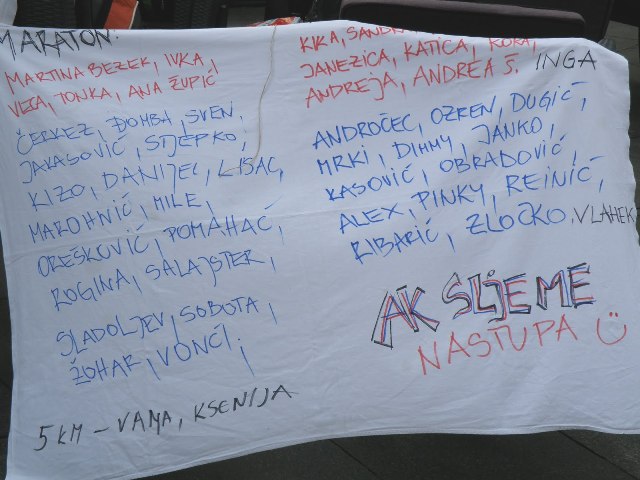 MARATON:
MARTINA BEZEK, IVKA,
VEGA, TONKA, ANA ŽUPIĆ
ČERKEZ, ĐOMBA, SVEN,
JAKASOVIĆ, STJEPKO,
KIZO, DANIJEL, LISAC,
MAROHNIĆ, MILE,
OREŠKOVIĆ, POMAHAČ,
ROGINA, SALAJSTER,
SLADOLJEV, SOBOTA,
ŽOHAR, VONĆI,
5 KM - VANJA, KSENIJA
KIKA, SANDRA
JANEZICA, KATICA, KOKA,
ANDREJA, ANDREA Š. INGA
ANDROČEC, OZREN, DUGIĆ,
MRKI, DIMMY, JANKO,
KASOVIĆ, OBRADOVIĆ,
ALEX, PINKY, REINIĆ,
RIBARIĆ, ZLOČKO, VLAHEK
AK SLJEME
NASTUPA Ü